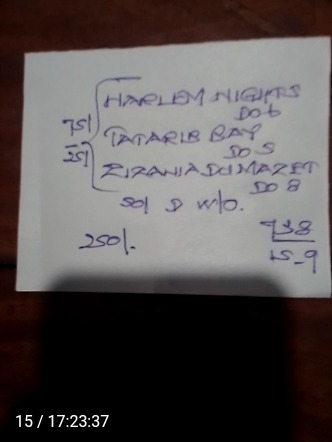 HARLEM NIGHTS
DO 6
75/
TATARIE BAY
DO 5
25/
ZIZANIA DU MAZET
DO 8
50/ D W/O.
250/.
738
15-9
15 / 17:23:37